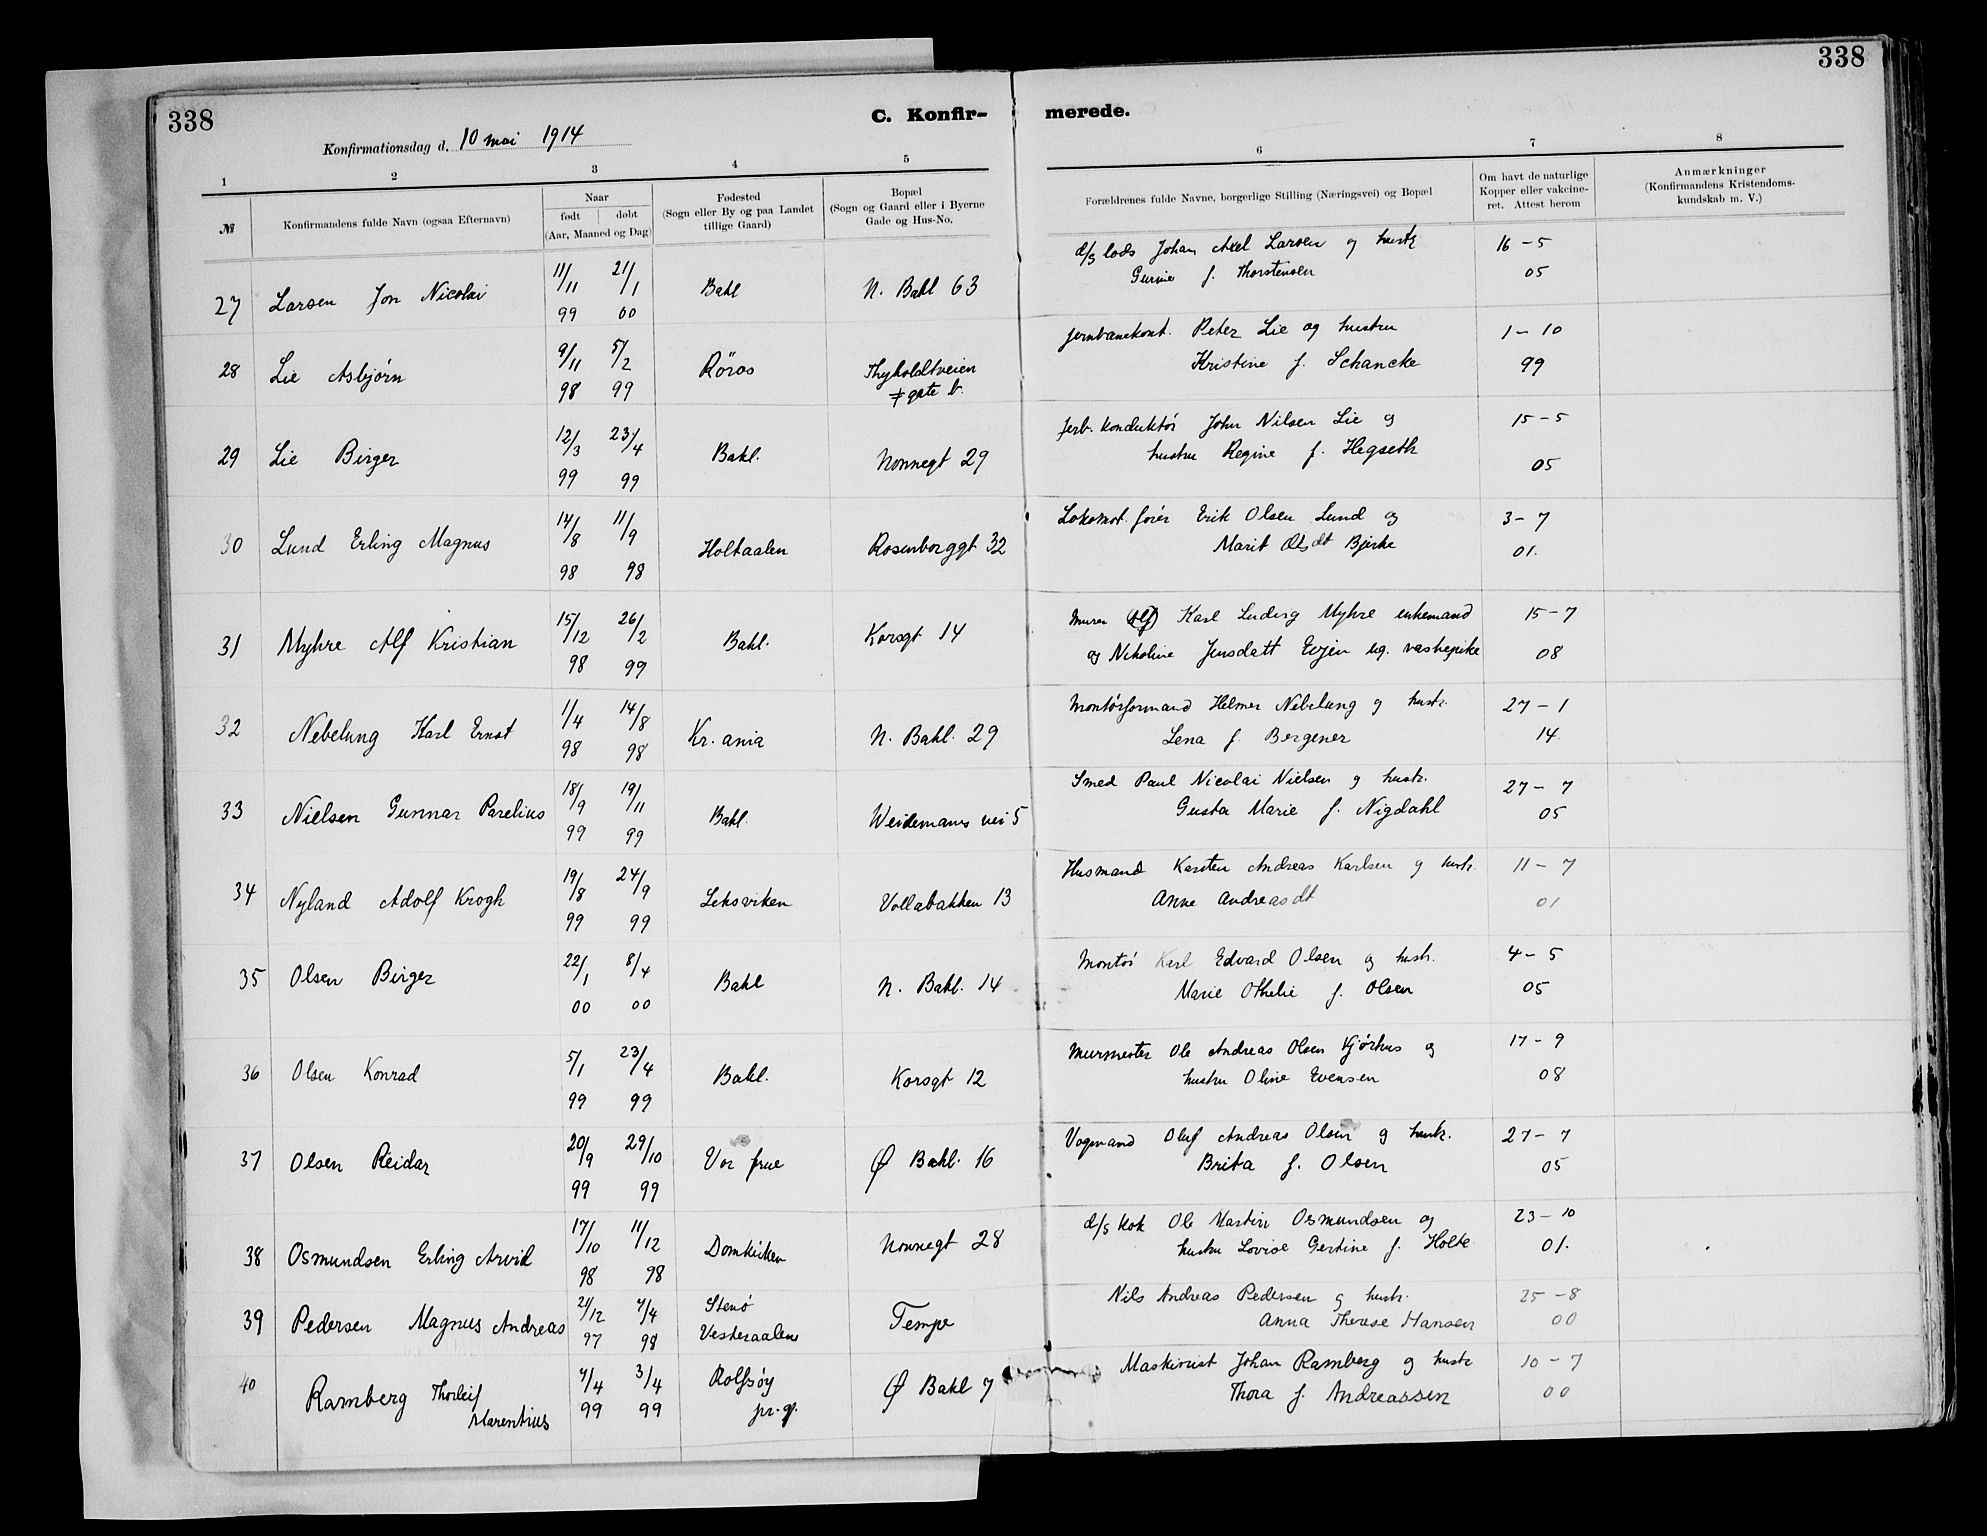 338
338
C. Konfir-
merede.
Konfirmationsdag d. 10 mai 1914
1 2 3 4 5 6 7 8
№
Konfirmandens fulde Navn (ogsaa Efternavn)
Naar
født døbt
(Aar, Maaned og Dag)
Fødested
(Sogn eller By og paa Landet
tillige Gaard)
Bopæl
(Sogn og Gaard eller i Byerne
Gade og Hus-No.
Forældrenes fulde Navne, borgerlige Stilling (Næringsvei) og Bopæl
Om havt de naturlige
Kopper eller vakcine-
ret. Attest herom
Anmærkninger
(Konfirmandens Kristendoms-
kundskab m. V.)
27 Larsen Jon Nicolai 11/11 99 21/1 00 Bakl N. Bakl 63
d/s lods Johan Axel Larsen og hustr 16-5
Gurine f. Thorstensen 05
28 Lie Asbjørn 9/11 98 5/2 99 Røros Thyholdtveien
gate b.
jernbanekont. Peter Lie og hustru 1-10
Kristine f. Schancke 99
29 Lie Birger 12/3 99 23/4 99 Bakl. Nonnegt 29
jerb. konduktør John Nilsen Lie og 15-5
hustru Regine f. Hegseth 05
30 Lund Erling Magnus 14/8 98 11/9 98 Holtaalen Rosenborggt 32
Lokomot. fører Erik Olsen Lund og 3-7
Marit Olsdt Bjerke 01.
31 Myhre Alf Kristian 15/12 98 26/2 99 Bakl. Korsgt 14
Murer (Alf) Karl Ludvig Myhre enkemand 15-7
og Nikoline Jensdatt Evjen ug. vaskepike 08
32 Nebelung Karl Ernst 1/4 98 14/8 98 Kr.ania N. Bakl. 29
Montørformand Helmer Nebelung og hustr. 27-1
Lena f. Bergener 14.
33 Nielsen Gunnar Parelius 18/9 99 19/11 99 Bakl. Weidemanns vei 5
Smed Paul Nicolai Nielsen og hustr. 27-7
Gusta Marie f. Nigdahl 05
34 Nyland Adolf Krogh 19/8 99 24/9 99 Leksviken Vollabakken 13
Husmand Karsten Andreas Karlsen og hustr. 11-7
Anne Andreasdt 01
35 Olsen Birger 22/1 00 8/4 00 Bakl N. Bakl. 14
Montør Karl Edvard Olsen og hustr. 4-5
Marie Othelie f. Olsen 05
36 Olsen Konrad 5/1 99 23/4 99 Bakl. Korsgt 12
Murmester Ole Andreas Olsen Kjørhus og 17-9
hustru Oline Evensen 08
37 Olsen Reidar 20/9 99 29/10 99 Vor frue Ø Bakl. 16
Vognmand Oluf Andreas Olsen og hustr. 27-7
Brita f. Olsen 05
38 Osmundsen Erling Arvid 17/10 98 11/12 98 Domkirken Nonnegt 28
d/s kok Ole Martin Osmundsen og 23-10
hustru Lovise Gertine f. Holte 01.
39 Pedersen Magnus Andreas 21/12 97 4/98 Vesteraalen Tempe
Nils Andreas Pedersen og hustr. 25-8
Anna Therese Hansen 00
40 Ramberg Thorleif
Marentius 99 3/4 99 Rolfsøy
pr. Ø Bakl 7
Maskinist Johan Ramberg og hustr 10-7
Thora f. Andreassen 00